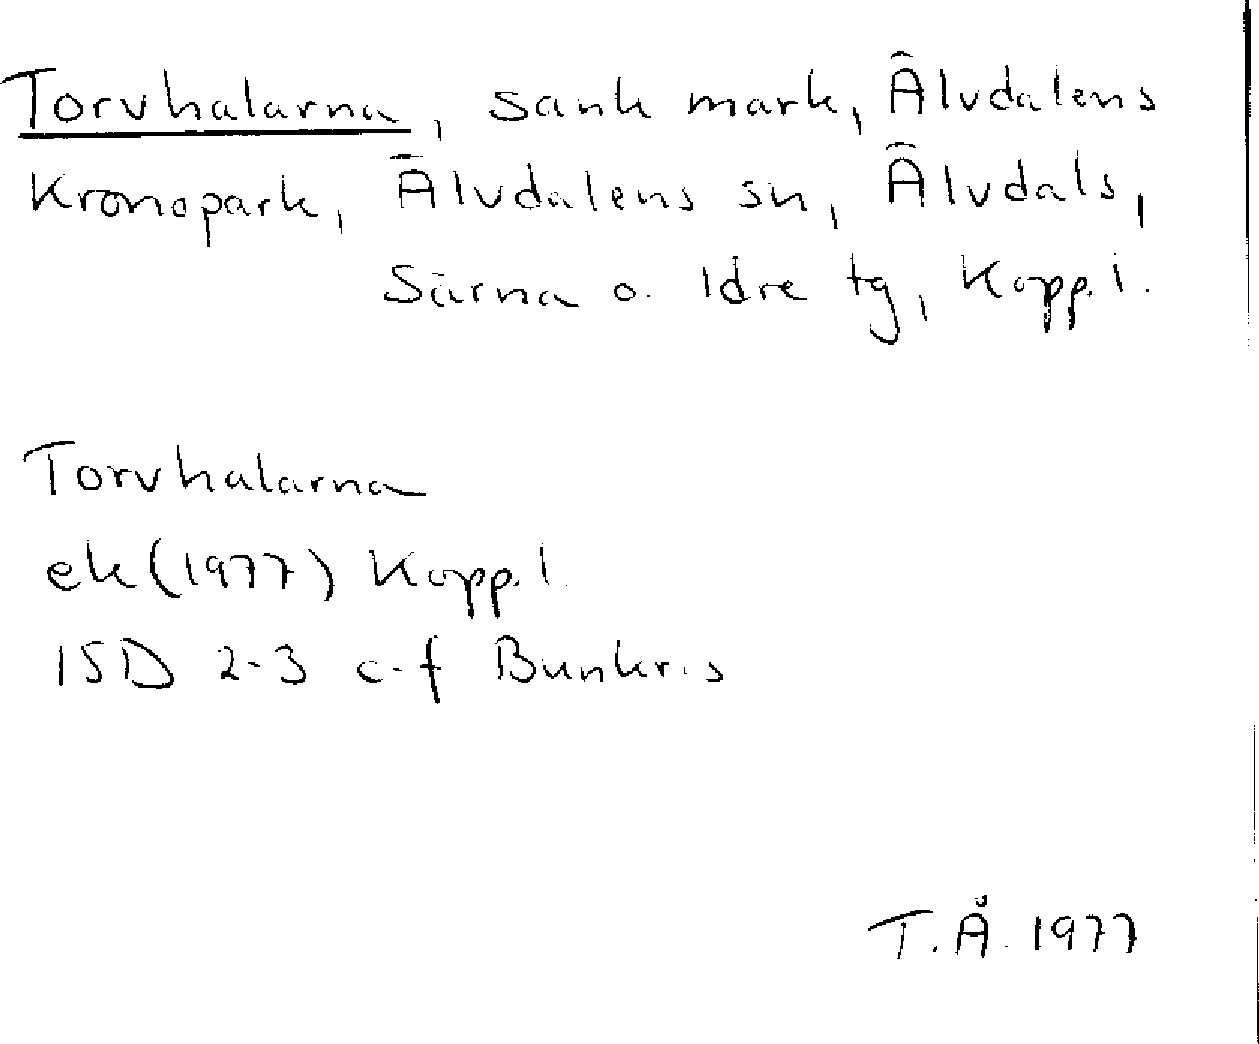 Torvhalarna, sank mark, Älvdalens
Kronopark, Älvdalens sn, Älvdals,
Särna o. Idre tg, Kopp. l.
Torvhalarna
ek (1977) Kopp. l.
15D 2-3 c-f Bunkris
T. Å. 1977